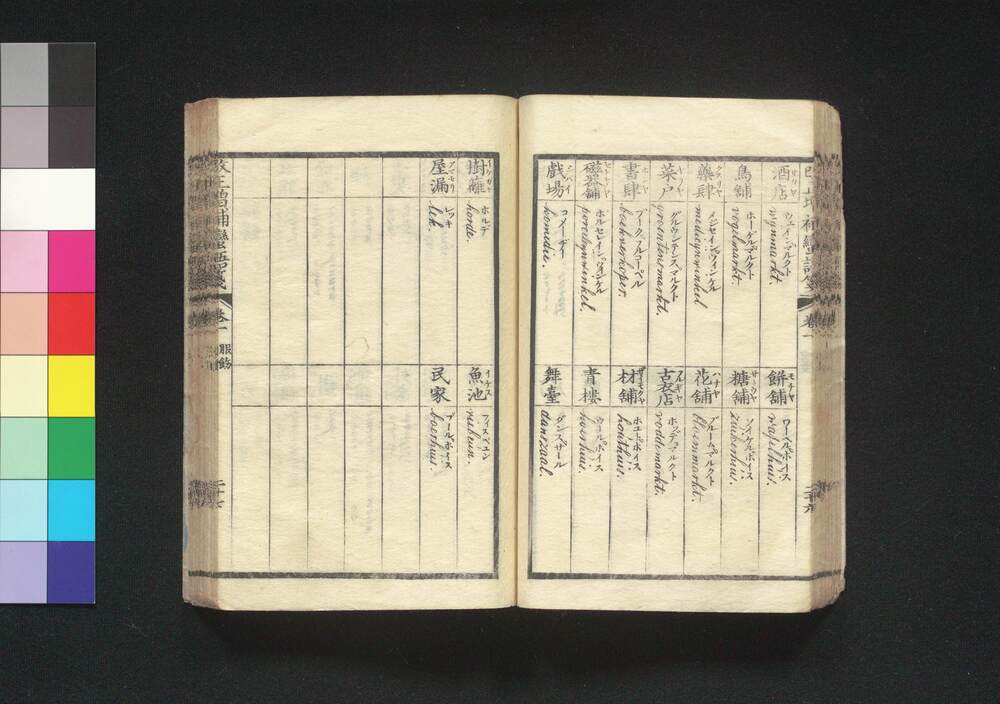 酒店
wynmarkt.
鳥舗
ホーゲルマルクト
vogelmarkt.
藥肆
medicynwinkel
菜戸
グルウンテンスマルクト
groentensmarkt.
書肆
ブーク フルコーペル
boekverkoper.
磁器舗
porcelynwinkel.
戯場
シバイ
コメーディー
komedie.
餅舗
モチヤ
ワーヘルホイス
wafelhuis.
糖舗
サトウヤ
ソイケルホイス
zuikerhuis.
花舗
ハナヤ
ブルームマルクト
bloemmarkt.
古衣店
フルギヤ
ホッデマルクト
voddemarkt.
材舗
ホウトホイス
houthuis.
青樓
ウールホイス
hoerhuis.
舞臺
ダンスザール
danszaal.
樹籬
イケガキ
ホルデ
horde.
屋漏
アマモリ
レッキ
lek.
魚池
イケス
民家
ブールホイス
boerhuis.
卷一